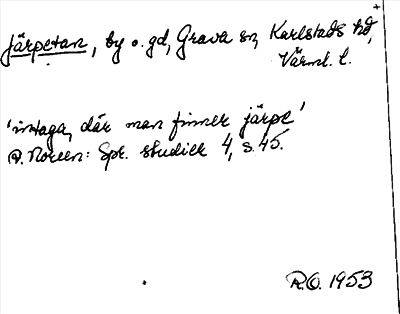 Järpetan, by o. gd, Grava sn, Karlstads hd,
Värml. l.
'intaga, där man finner järpe'
A. Noreen: Spr. studier 4, s. 45.
R.O. 1953